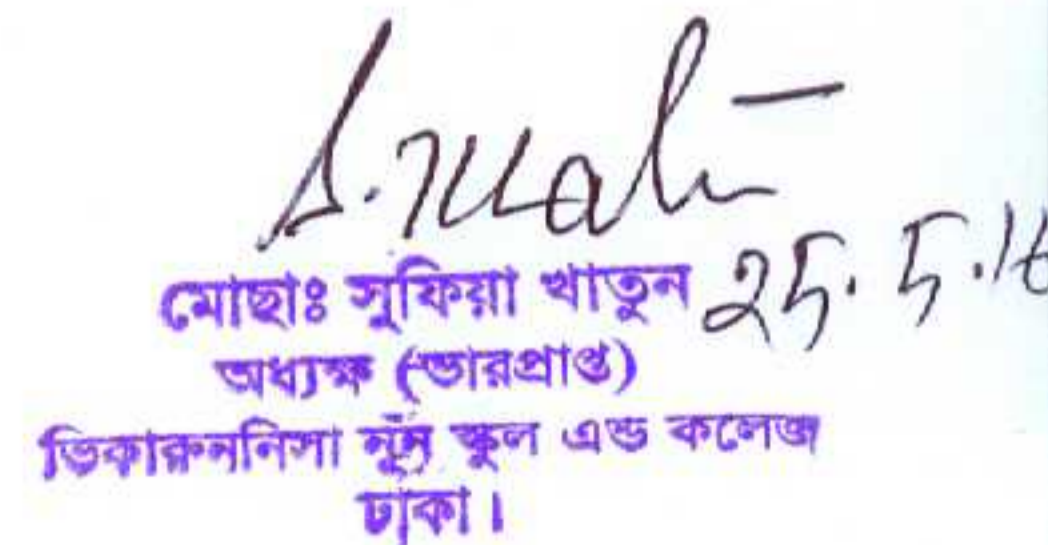 মোছাঃ সুফিয়া খাতুন 25.5.16
অধ্যক্ষ (ভারপ্রাপ্ত)
ভিকারুননিসা নূন স্কুল এন্ড কলেজ
ঢাকা।